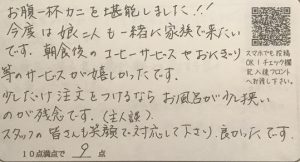 お腹一杯カニを堪能しました!!
今度は娘二人も一緒に家族で来たい
です。朝食後のコーヒーサービスやおにぎり
等のサービスが嬉しかったです。
少しだけ注文をつけるなら お風呂が少し狭い
のが残念です。(主人談)
スタッフの皆さんも笑顔で対応して下さり、良かったです。
10点満点で 9 点
スマホでも投稿
OK!チェック欄
記入後フロント
へお渡し下さい。